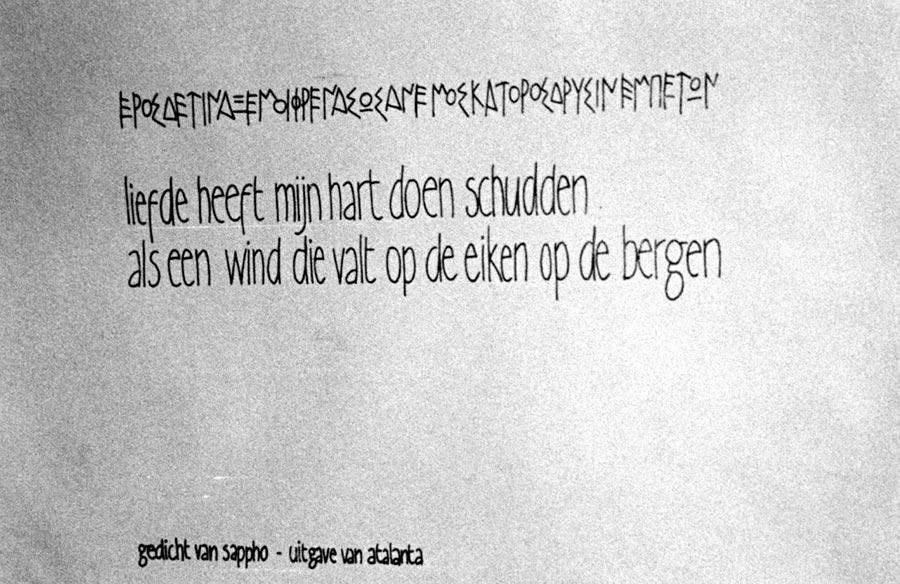 ΕΡΟΣΔΕΤΙΝΑΞΕΜΟΙΦΡΕΝΑΣΩΣΑΝΕΜΟΣΚΑΤΟΡΟΣΔΡΥΣΙΝΕΜΠΕΤΩΝ
liefde heeft mijn hart doen schudden
als een wind die valt op de eiken op de bergen
gedicht van sappho - uitgave van atalanta